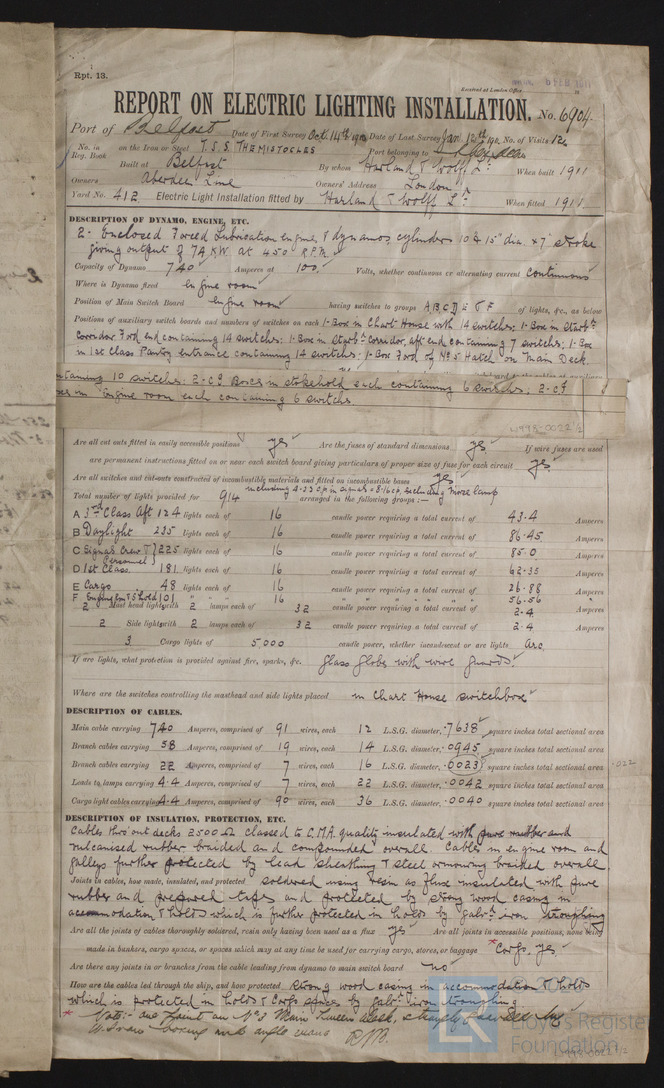 Rpt. 13.
Received at London Office
REPORT ON ELECTRIC LIGHTING INSTALLATION. No. 6904
Port of Belfast Date of First Survey Oct 14th 1910 Date of Last Survey Jan 12th No. of Visits 12
No. in Reg. Book on the Iron or Steel T.S.S THEMISTOCLES Port belonging to
Built at Belfast By whom Harland & Wolff Ld. When built 1911
Owners Aberdeen Line Owners' Address London
Yard No. 412 Electric Light Installation fitted by Harland & Wolff Ld. When fitted 1911
DESCRIPTION OF DYNAMO, ENGINE, ETC.
2 - Enclosed Forced Lubrication engines & dynamos, cylinders 10 & 15" dia. x 7" stroke
giving output of 74 KW at 450 R.P.M.
Capacity of Dynamo 740 Amperes at 100 Volts, whether continuous or alternating current Continuous
Where is Dynamo fixed engine room
Position of Main Switch Board engine room having switches to groups A B C D E & F of lights, &c., as below
Positions of auxiliary switch boards and numbers of switches on each 1-Box in Chart House with 14 switches: 1-Box in Starbd.
Corridor Ford end containing 14 switches: 1-Box in Starbd. Corridor, aft end containing 7 switches; 1-Box
in 1st Class Pantry entrance containing 14 switches: 1-Box Ford of No 5 Hatch on Main Deck.
taining 10 switches: 2-C.I Boxes in stokehold each containing 6 switches; 2-C.I
es in engine room each containing 6 switches
W998-0022 1/2
Are all cut outs fitted in easily accessible positions yes Are the fuses of standard dimensions yes If wire fuses are used
are permanent instructions fitted on or near each switch board giving particulars of proper size of fuse for each circuit yes.
Are all switches and cut-outs constructed of incombustible materials and fitted on incombustible bases yes
Total number of lights provided for 914 including 4-32 c.p in signals = 8-16 c.p, excluding morse lamp arranged in the following groups :—
A 3rd Class Aft 124 lights each of 16 candle power requiring a total current of 43.4 Amperes
B Daylight 235 lights each of 16 candle power requiring a total current of 86.45 Amperes
C Signals Crew & Personnel 225 lights each of 16 candle power requiring a total current of 85.0 Amperes
D 1st Class. 181 lights each of 16 candle power requiring a total current of 62.35 Amperes
E Cargo 48 lights each of 16 candle power requiring a total current of 26.88 Amperes
F Engine Rm & S hold 101 " " 16 " " " " " " 56.56 "
2 Mast head lights with 2 lamps each of 32 candle power requiring a total current of 2.4 Amperes
2 Side lights with 2 lamps each of 32 candle power requiring a total current of 2.4 Amperes
3 Cargo lights of 5000 candle power, whether incandescent or arc lights Arc.
If arc lights, what protection is provided against fire, sparks, &c. Glass globe with wire guards.
Where are the switches controlling the masthead and side lights placed in Chart House switchbox
DESCRIPTION OF CABLES.
Main cable carrying 740 Amperes, comprised of 91 wires, each 12 L.S.G. diameter, .7638 square inches total sectional area
Branch cables carrying 58 Amperes, comprised of 19 wires, each 14 L.S.G. diameter, .0945 square inches total sectional area
Branch cables carrying 22 Amperes, comprised of 7 wires, each 16 L.S.G. diameter, .0023 square inches total sectional area .022
Leads to lamps carrying 4.4 Amperes, comprised of 7 wires, each 22 L.S.G. diameter, .0042 square inches total sectional area
Cargo light cables carrying 4.4 Amperes, comprised of 90 wires, each 36 L.S.G. diameter, .0040 square inches total sectional area
DESCRIPTION OF INSULATION, PROTECTION, ETC.
Cables thro'out decks 2500 Ω classed to C.M.A. quality, insulated with pure rubber and
vulcanised rubber braided and compounded overall. Cables in engine room and
galleys further protected by lead sheathing & steel armouring braided overall
Joints in cables, how made, insulated, and protected soldered using resin as flux insulated with pure
rubber and prepared tapes and protected by strong wood casing in
accommodation & holds which is further protected in holds by galvd. iron troughing
Are all the joints of cables thoroughly soldered, resin only having been used as a flux yes Are all joints in accessible positions, none being
made in bunkers, cargo spaces, or spaces which may at any time be used for carrying cargo, stores, or baggage * Cargo, yes
Are there any joints in or branches from the cable leading from dynamo to main switch board no
How are the cables led through the ship, and how protected strong wood casing in accommodation & holds
which is protected in holds & Cargo spaces by galvd. iron troughing.
* Note:- one joint in No 3 Main Tween Deck,
casing and angle
Lloyd's Register
Foundation
W998-0022 1/2